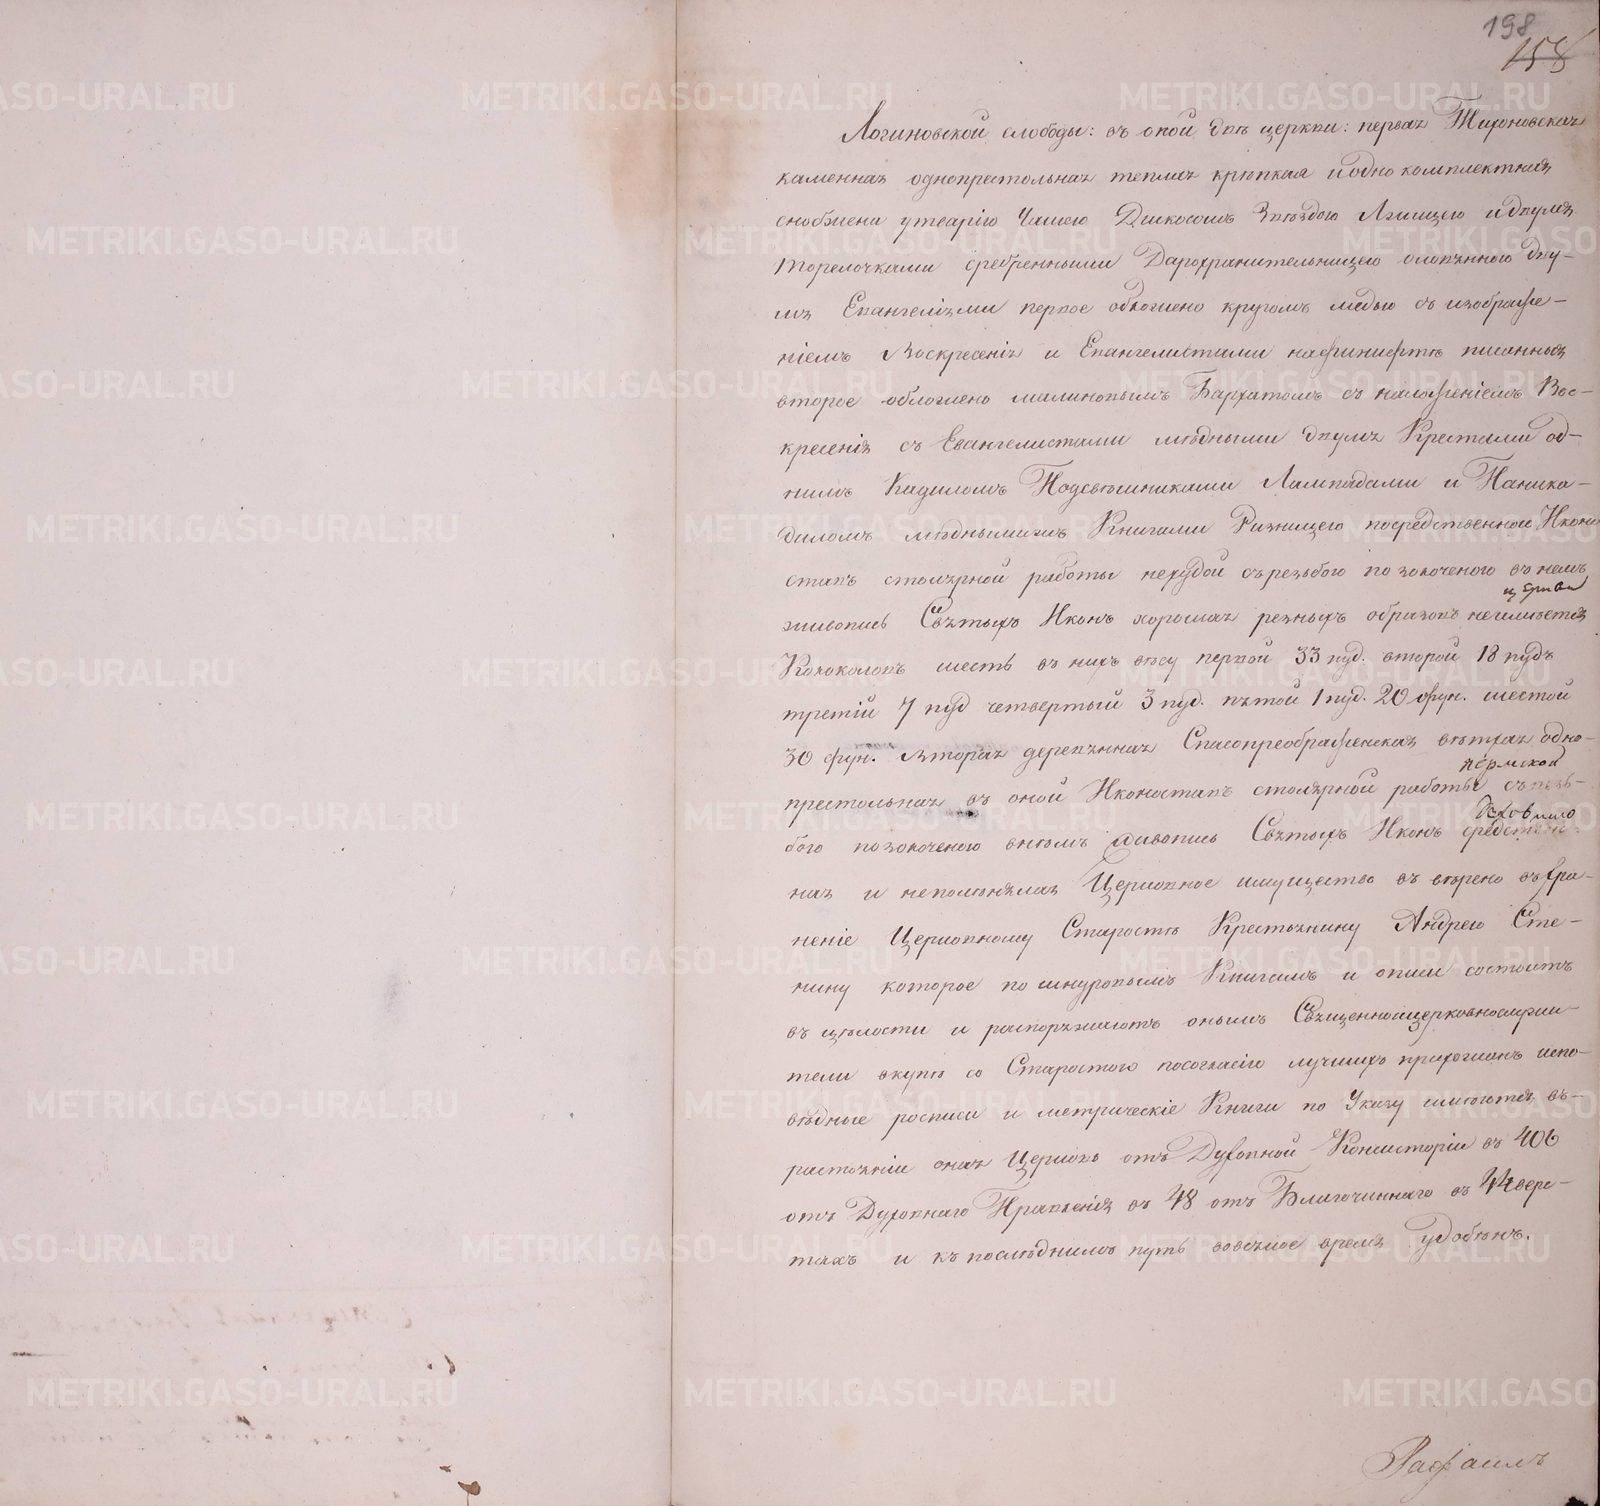 198
158
Логиновской слободы: въ оной двѣ церкви: первая Тихоновская
каменная однопрестольная теплая крѣпкая и одно комплектная
снобжена утварію Чашею Дискосомъ Звѣздою Лжицею и двумя
торелочками сребренными Дарохранительницею оловянною дву-
мя Евангеліями первое обложено кругомъ медью съ изображе-
ніемъ Воскресенія и Евангелистами нафинифтѣ писанныя
второе обложено малиновымъ Бархатомъ съ наложеніемъ Вос-
кресенія съ Евангелистами мѣдными двумя Крестами од-
нимъ Кадиломъ Подсвѣшниками Лампадами и Паника-
диломъ мѣднымижъ Книгами Ризницею посредственной Иконо
стасъ столярной работы нехудой съ резьбою по золоченого въ немъ
церкви
живопись Святыхъ Иконъ хорошая резныхъ образовъ неимѣется
Колоколовъ шесть въ нихъ вѣсу первой 33 пуд. второй 18 пудъ
третій 7 пуд четвертый 3 пуд. пятой 1 пуд. 20 фун. шестой
30 фун. Вторая деревянная Спасопреображенская ветхая одно-
пермской
престольная въ оной Иконостасъ столярной работы съ резь-
бого позолоченою внѣмъ живопись Святыхъ Иконъ средствен-
ная и неполинялая Церковное имущество въ вѣрено въ хра-
неніе Церковному Старостѣ Крестьянину Андрею Сте-
нину которое по шнуровымъ Книгамъ и описи состоитъ
въ цѣлости и распоряжаютъ онымъ Священноицерковнослужи-
тели вкупѣ со Старостою посогласію лучшихъ прихожанъ испо-
вѣдные росписи и метрическіе Книги по Указу имѣются въ-
растояніи оная Церковь отъ Духовной Консисторіи въ 406
отъ Духовнаго Правленія въ 48 отъ Благочиннаго въ 44 верс-
тахъ и къ послѣднимъ путь вовсякое время удобенъ.
Рафаилъ
METRIKI.GASO-URAL.RU